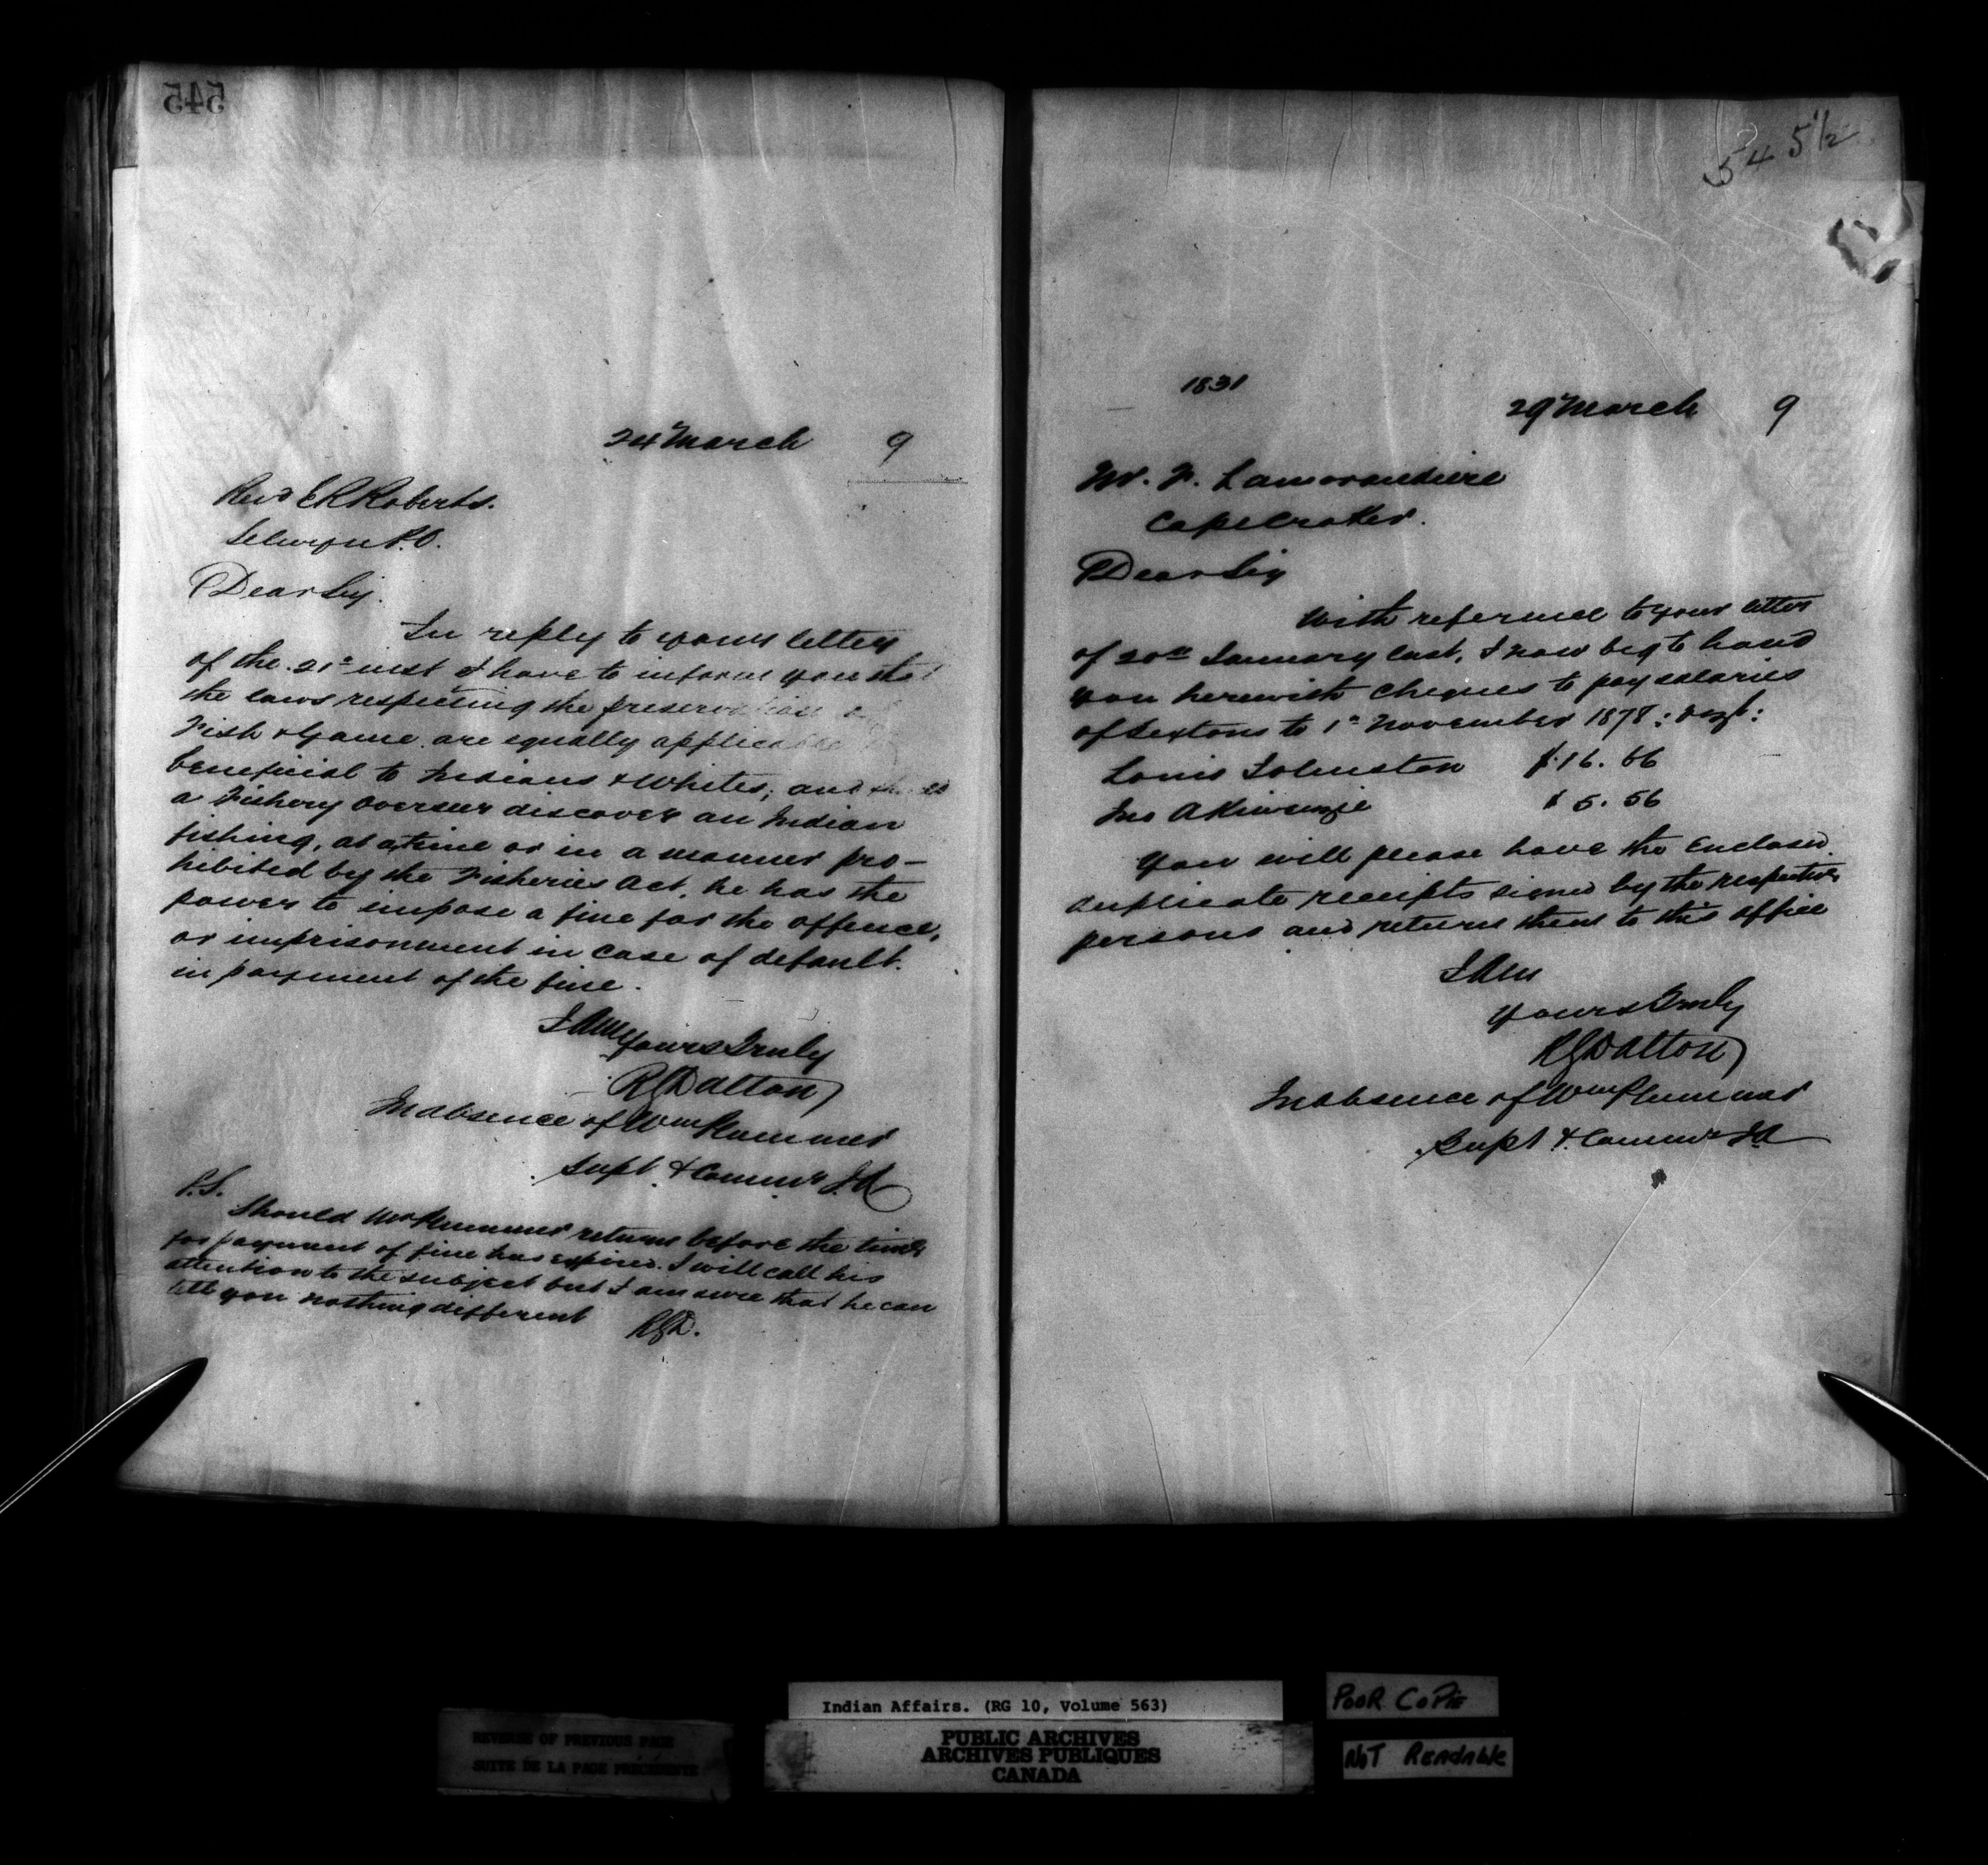 545
24 March 9
Revd E R Roberts.
Selwyn P.O.
Dear Sir.
In reply to your letter
of the 21st inst I have to inform you that
the laws respecting the preservation of
Fish & Game are equally applicable
beneficial to Indians & Whites; and should
a Fishery Overseer discover an Indian
fishing, at a time or in a manner pro-
hibited by the Fisheries Act, he has the
power to impose a fine for the offence,
or imprisonment in case of default.
in payment of the fine.
I Am
Yours Truly
R G Dalton
In absence of Wm Plummer
Supt & Commr I A
P.S.
Should Mr Plummer return before the time
for payment of fine has expired. I will call his
attention to the subject but I am sure that he can
tell you nothing different
RGD.
545 1/2
1831
29 March 9
Mr. F. Lamorandiere
Cape Croker.
Dear Sir
With reference to your letter
of 20th January last, I now beg to hand
you herewith cheques to pay salaries
of Sextons to 1st November 1878:
Louis Johnston $16.66
Jno Akiwenzie $5.56
You will please have the Enclosed
duplicate receipts signed by the respective
persons and return them to this office
I Am
Yours Truly
R G Dalton
In absence of Wm Plummer
Supt & Commr I A
REVERSE OF PREVIOUS PAGE
SUITE DE LA PAGE PRÉCÉDENTE
Indian Affairs. (RG 10, Volume 563)
PUBLIC ARCHIVES
ARCHIVES PUBLIQUES
CANADA
POOR COPIE
NOT READABLE